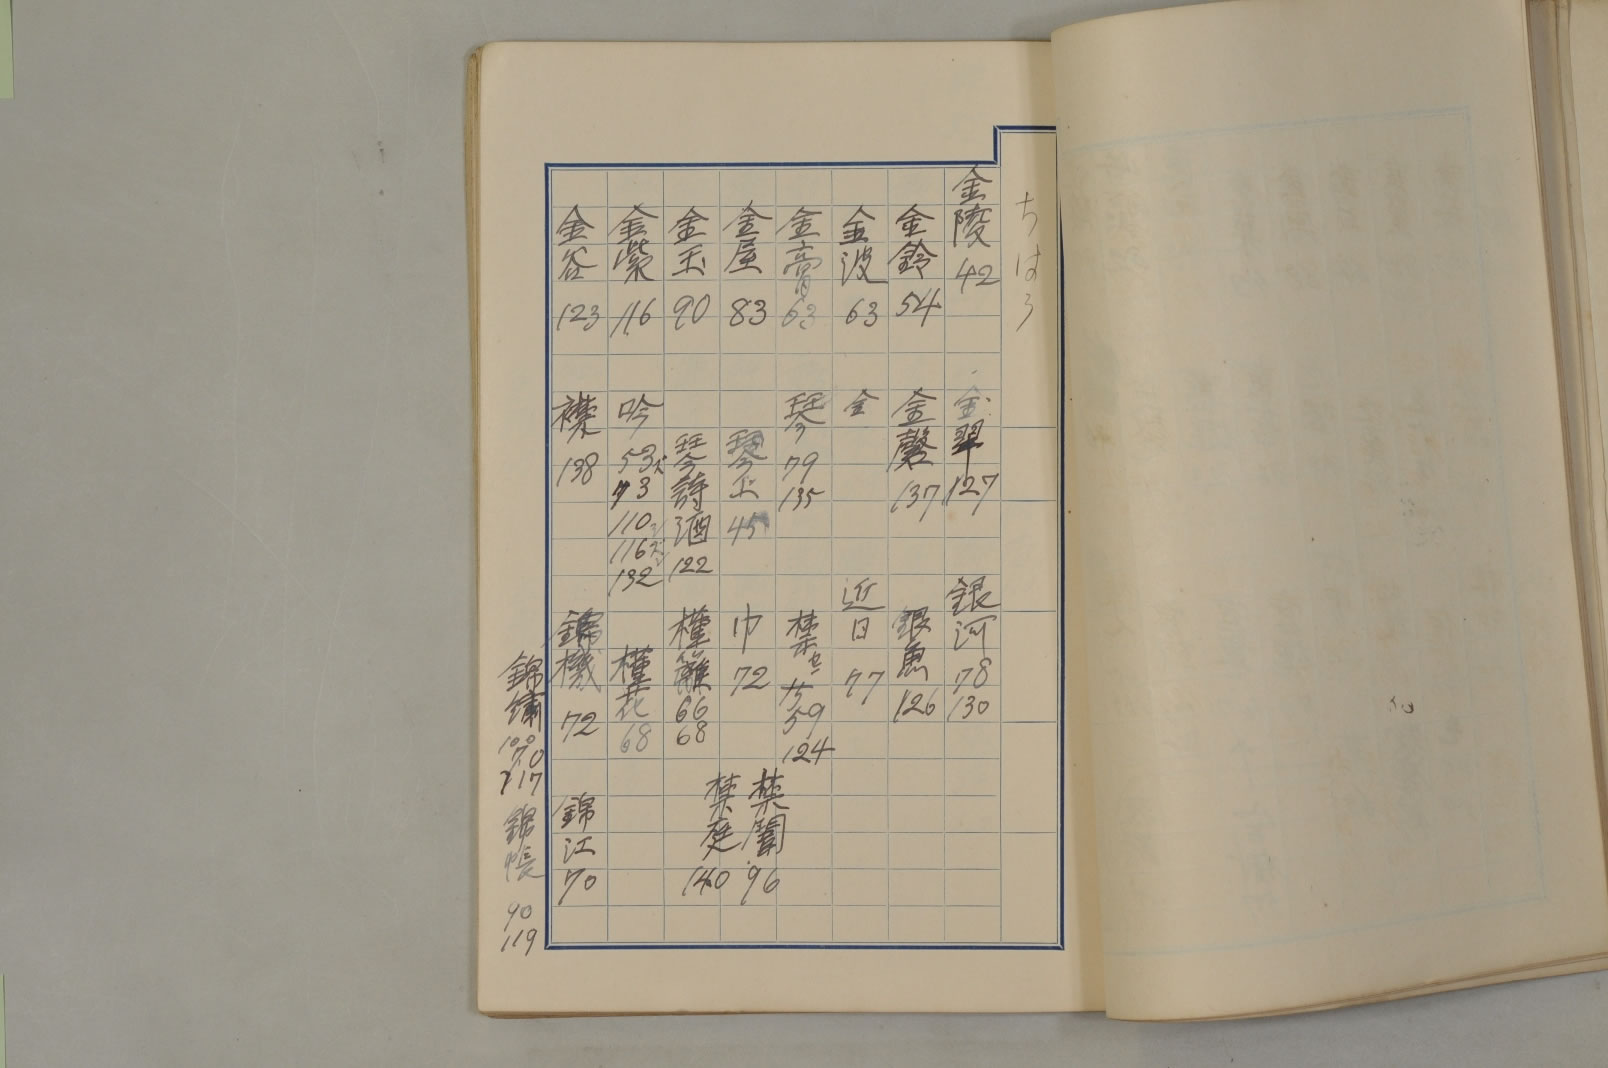 ちはう
金陵 42
金鈴 54
金波 63
金膏 63
金屋 83
金玉 90
金紫 116
金谷 123
金翠 127
金磬 137
金
琴 79 135
琴上 45
琴詩酒 122
吟 53 73 110 116 132
襟 138
銀河 78 130
銀魚 126
近日 77
禁 59 124
巾 72
槿籬 66 68
槿花 68
錦機 72
禁闈 96
禁庭 140
錦江 70
錦繍 100 70 117
錦帳 90 119